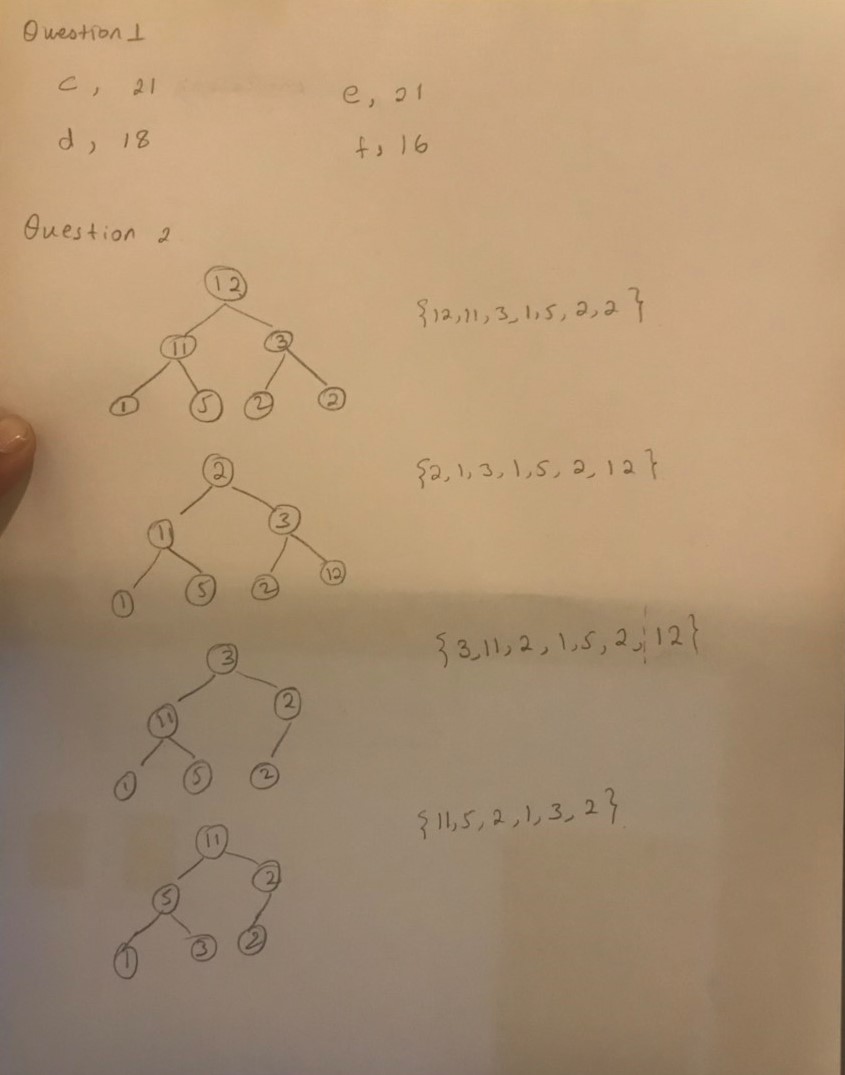 Question 1
c, 21 e, 21
d, 18 f, 16
Question 2
12
{12,11,3,1,5,2,2}
11 3
1 5 2 2
2
{2,1,3,1,5,2,12}
1 3
1 5 2 12
3
{3,11,2,1,5,2,12}
11 2
1 5 2
11
{11,5,2,1,3,2}
5 2
1 3 2